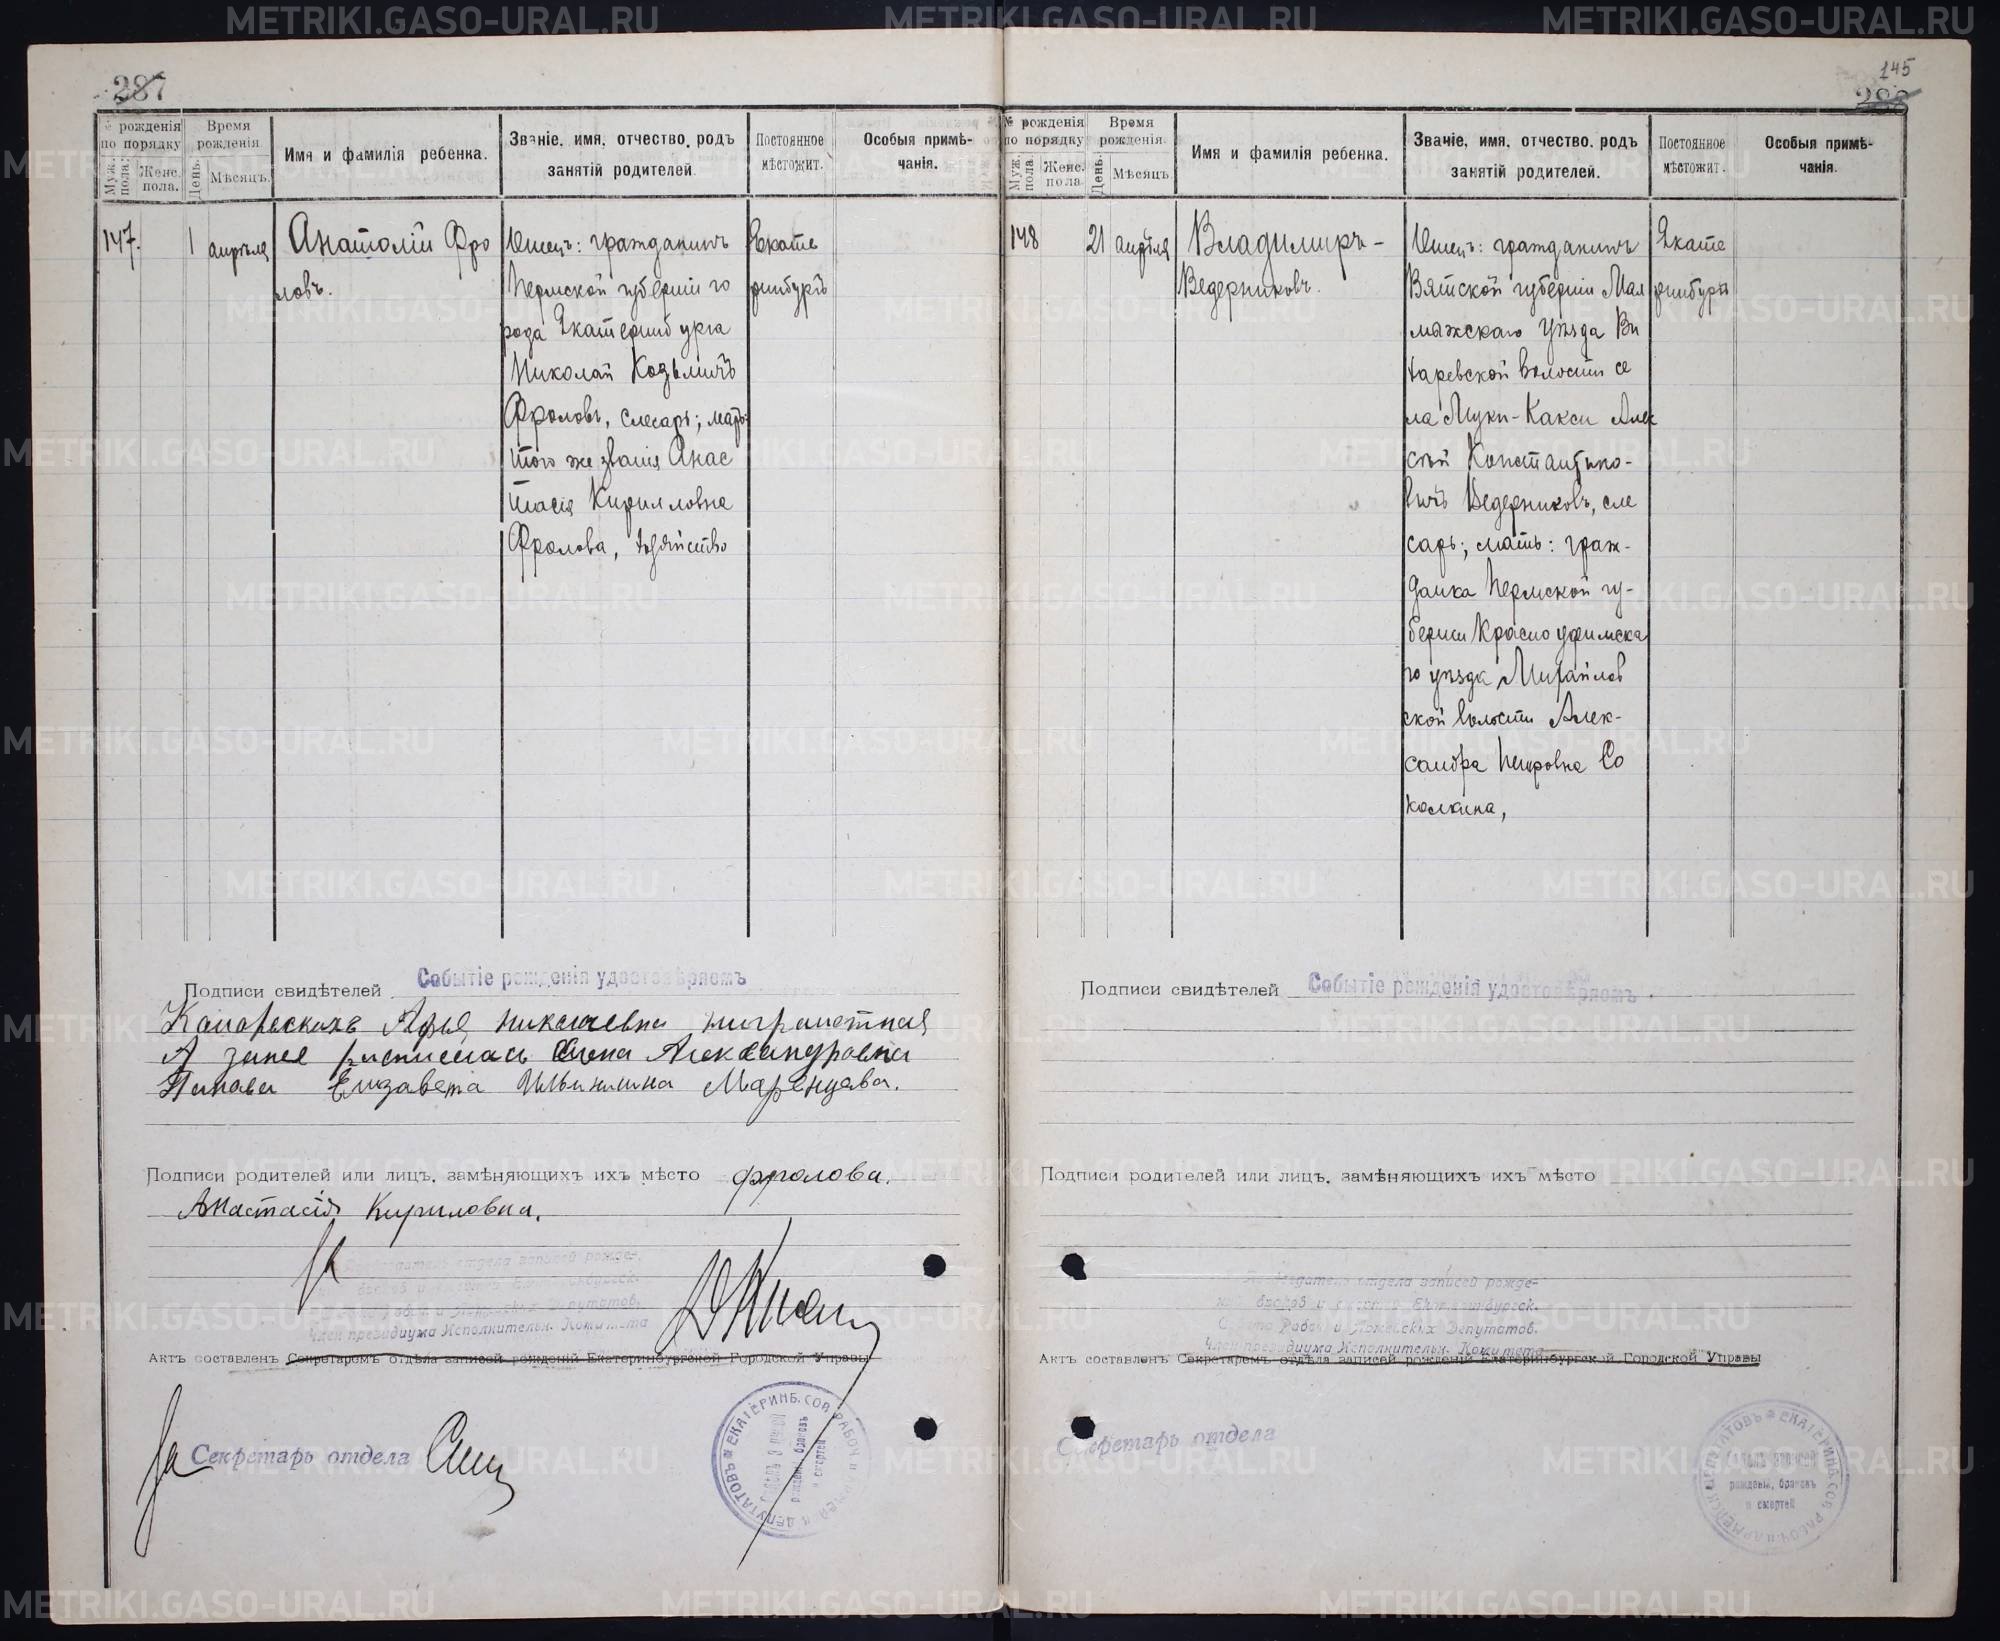 287
№ рожденія по порядку
Муж. пола.
Женс. пола.
Время рожденія
День.
Мѣсяцъ.
Имя и фамилія ребенка.
Званіе, имя, отчество, родъ занятій родителей.
Постоянное мѣстожит.
Особыя примѣчанія.
147.
1
апрѣля
Анатолій Фро
ловъ.
Отецъ: гражданинъ
Пермской губерніи го
рода Екатеринбурга
Николай Козьмичъ
Фроловъ, слесарь; мать:
того же званія Анас
тасія Кирилловна
Фролова, хозяйство
Екате
ринбургъ
Подписи свидѣтелей
Событіе рожденія удостовѣряемъ
неграмотная
А за нея росписалась Елена Александровна
Попова Елизавета Ильинична
Подписи родителей или лицъ, замѣняющихъ ихъ мѣсто Фролова.
Анастасія Кириловна.
За
Председатель отдела записей рожде-
браков и смертей Екатеринбургск.
Рабоч. и Армейских Депутатов,
Член президиума Исполнительн. Комитета
Актъ составленъ Секретаремъ отдѣла записей рожденій Екатеринбургской Городской Управы
За Секретарь отдела
ЕКАТЕРИНБ. СОВ. РАБОЧ. И АРМЕЙ. ДЕПУТАТОВЪ
рожденій, браковъ
и смертей
145
288
№ рожденія по порядку
Муж. пола.
Женс. пола
Время рожденія.
День.
Мѣсяцъ.
Имя и фамилія ребенка.
Званіе, имя, отчество, родъ занятій родителей.
Постоянное мѣстожит.
Особыя примѣчанія.
148
21
апрѣля
Владимиръ -
Ведерниковъ.
Отецъ: гражданинъ
Вятской губерніи Мал
мыжскаго уѣзда Ви
харевской волости се
ла Муки-Какси Алек
сѣй Константино-
вичъ Ведерниковъ, сле
сарь; мать: граж-
данка Пермской гу-
берніи Красноуфимска
го уѣзда Михайлов
ской волости Алек-
сандра Петровна Со
колкина,
Екате
ринбургъ
Подписи свидѣтелей
Событіе рожденія удостовѣряемъ.
Подписи родителей или лицъ, замѣняющихъ ихъ мѣсто
Председатель отдела записей рожде-
браков и смертей Екатеринбургск.
Совета Рабоч. и Армейских Депутатов.
Член президиума Исполнительн. Комитета
Актъ составленъ Секретаремъ отдѣла записей рожденій Екатеринбургской Городской Управы
Секретарь отдела
ЕКАТЕРИНБ. СОВ. РАБОЧ. И АРМЕЙСК. ДЕПУТАТОВЪ
отдѣлъ записей
рожденій, браковъ
и смертей
METRIKI.GASO-URAL.RU